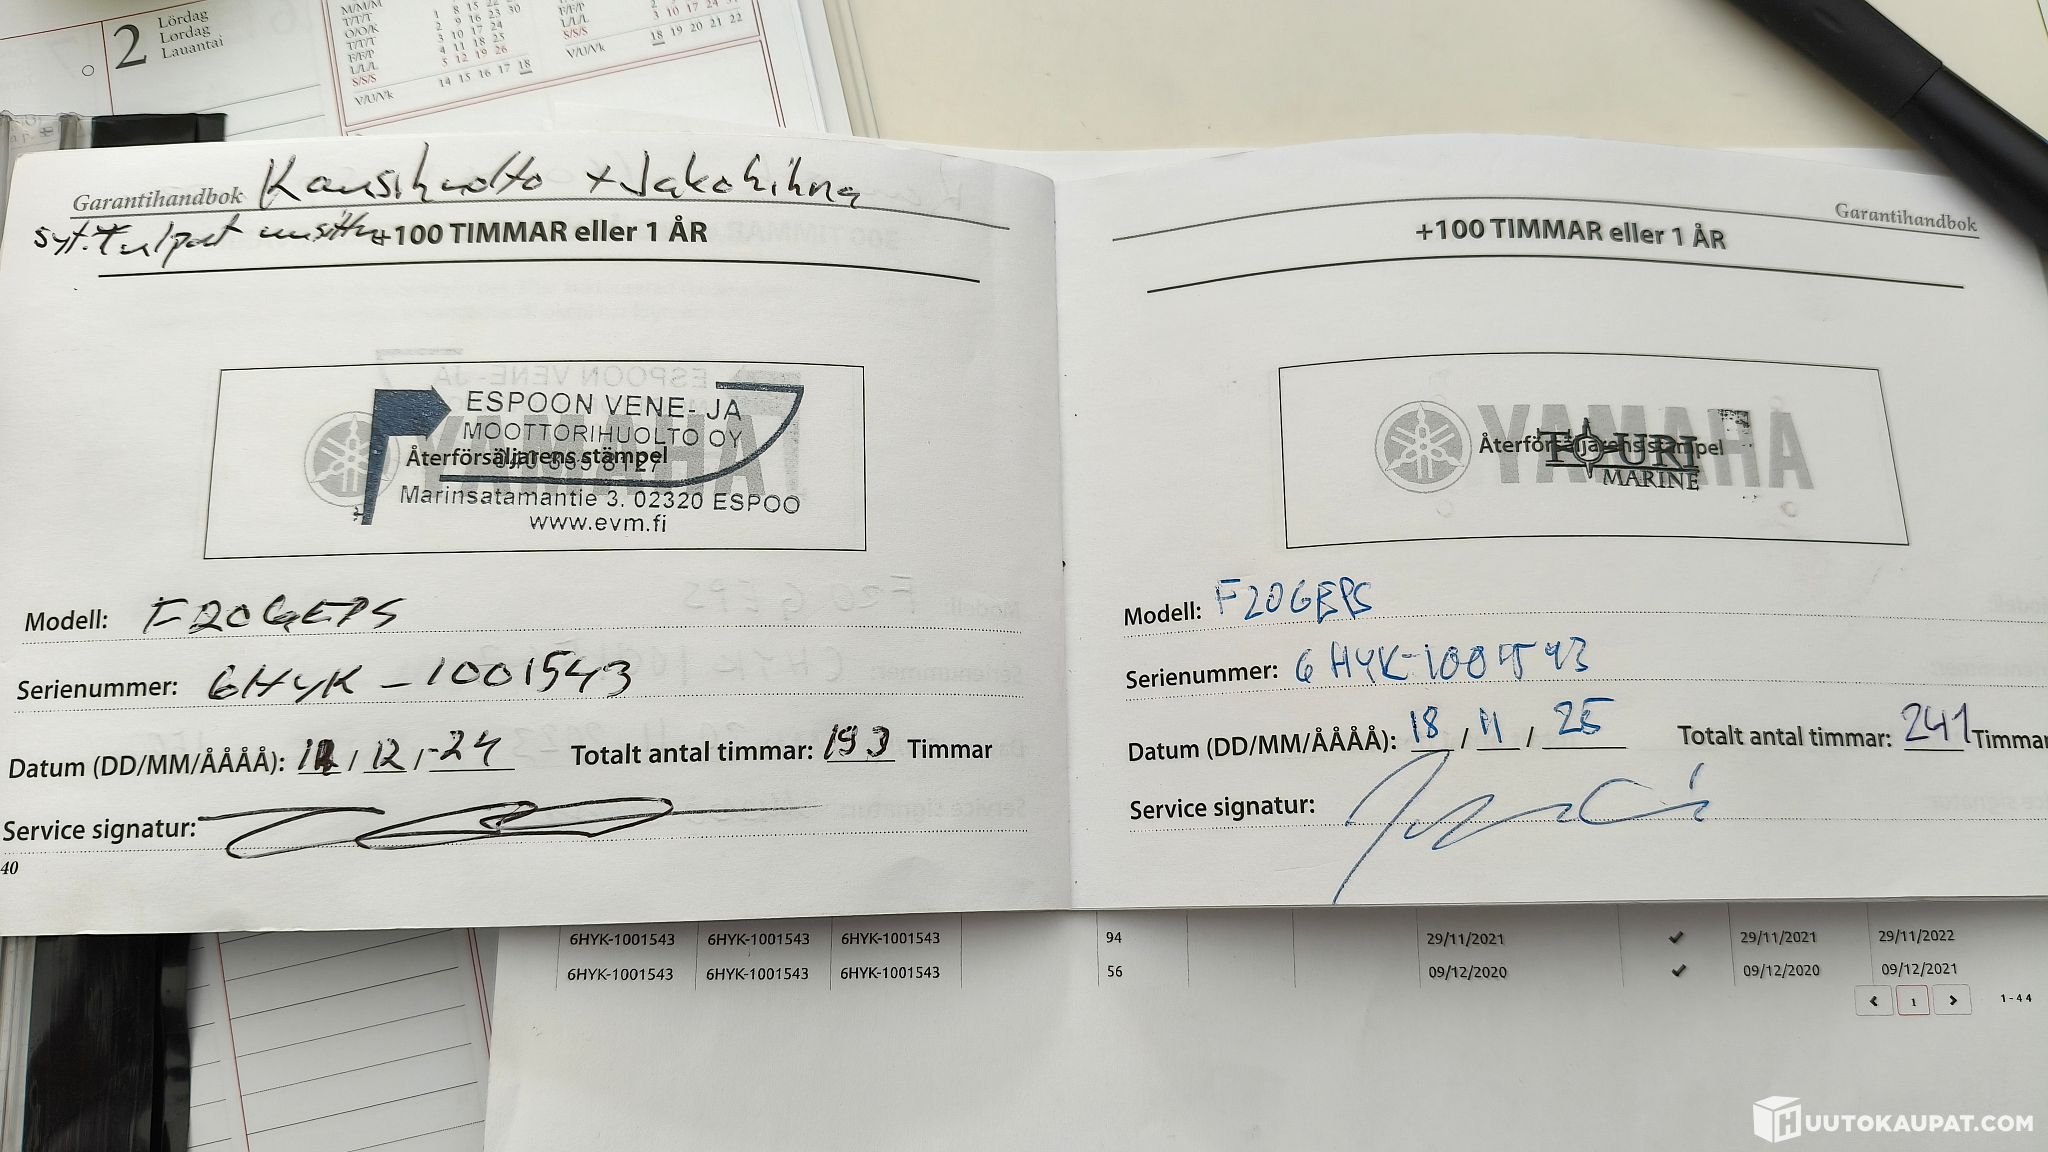 2 Lördag
Lørdag
Lauantai
M/M/M
T/T/T
O/O/K
T/T/T
F/F/P
L/L/L
S/S/S
V/U/Vk
1 8 15
2 9 16 23 30
3 10 17 24
4 11 18 25
5 12 19 26
14 15 16 17 18
F/F/P
L/L/L
S/S/S
V/U/Vk
3 10 17 24
18 19 20 21 22
Garantihandbok Kausihuolto + Jakohihna
syt.tulpat uusittu +100 TIMMAR eller 1 ÅR
ESPOON VENE- JA
MOOTTORIHUOLTO OY
YAMAHA
Återförsäljarens stämpel
Marinsatamantie 3, 02320 ESPOO
www.evm.fi
Modell: F20GEPS
Serienummer: 6HYK-1001543
Datum (DD/MM/ÅÅÅÅ): / 12 / -24 Totalt antal timmar: 193 Timmar
Service signatur:
40
Garantihandbok
+100 TIMMAR eller 1 ÅR
YAMAHA
Återförsäljarens stämpel
FOURI
MARINE
Modell: F20GEPS
Serienummer: 6HYK-1001543
Datum (DD/MM/ÅÅÅÅ): 18 / 11 / 25 Totalt antal timmar: 241 Timmar
Service signatur:
6HYK-1001543 6HYK-1001543 6HYK-1001543 94 29/11/2021 ✓ 29/11/2021 29/11/2022
6HYK-1001543 6HYK-1001543 6HYK-1001543 56 09/12/2020 ✓ 09/12/2020 09/12/2021
< 1 > 1-44
HUUTOKAUPAT.COM